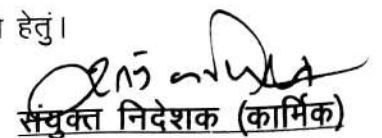 हेतुं।
संयुक्त निदेशक (कार्मिक)